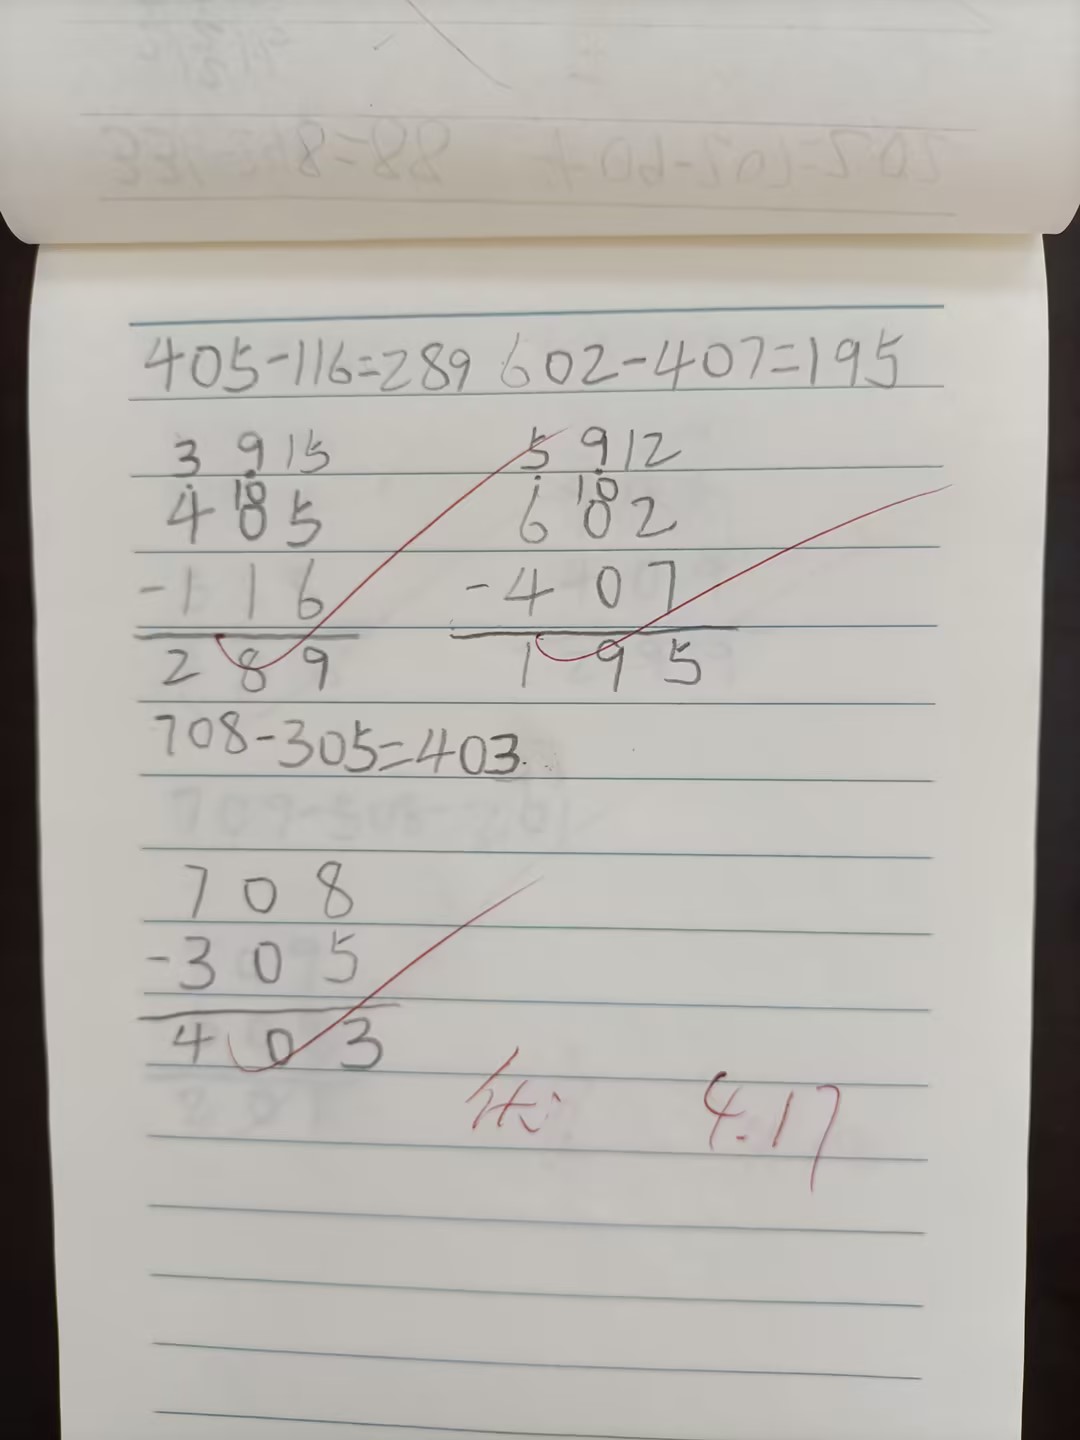 405-116=289 602-407=195
3 9 15 5 9 12
10 10
4 0 5 6 0 2
-1 1 6 -4 0 7
2 8 9 1 9 5
708-305=403
7 0 8
-3 0 5
4 0 3
优 4.17